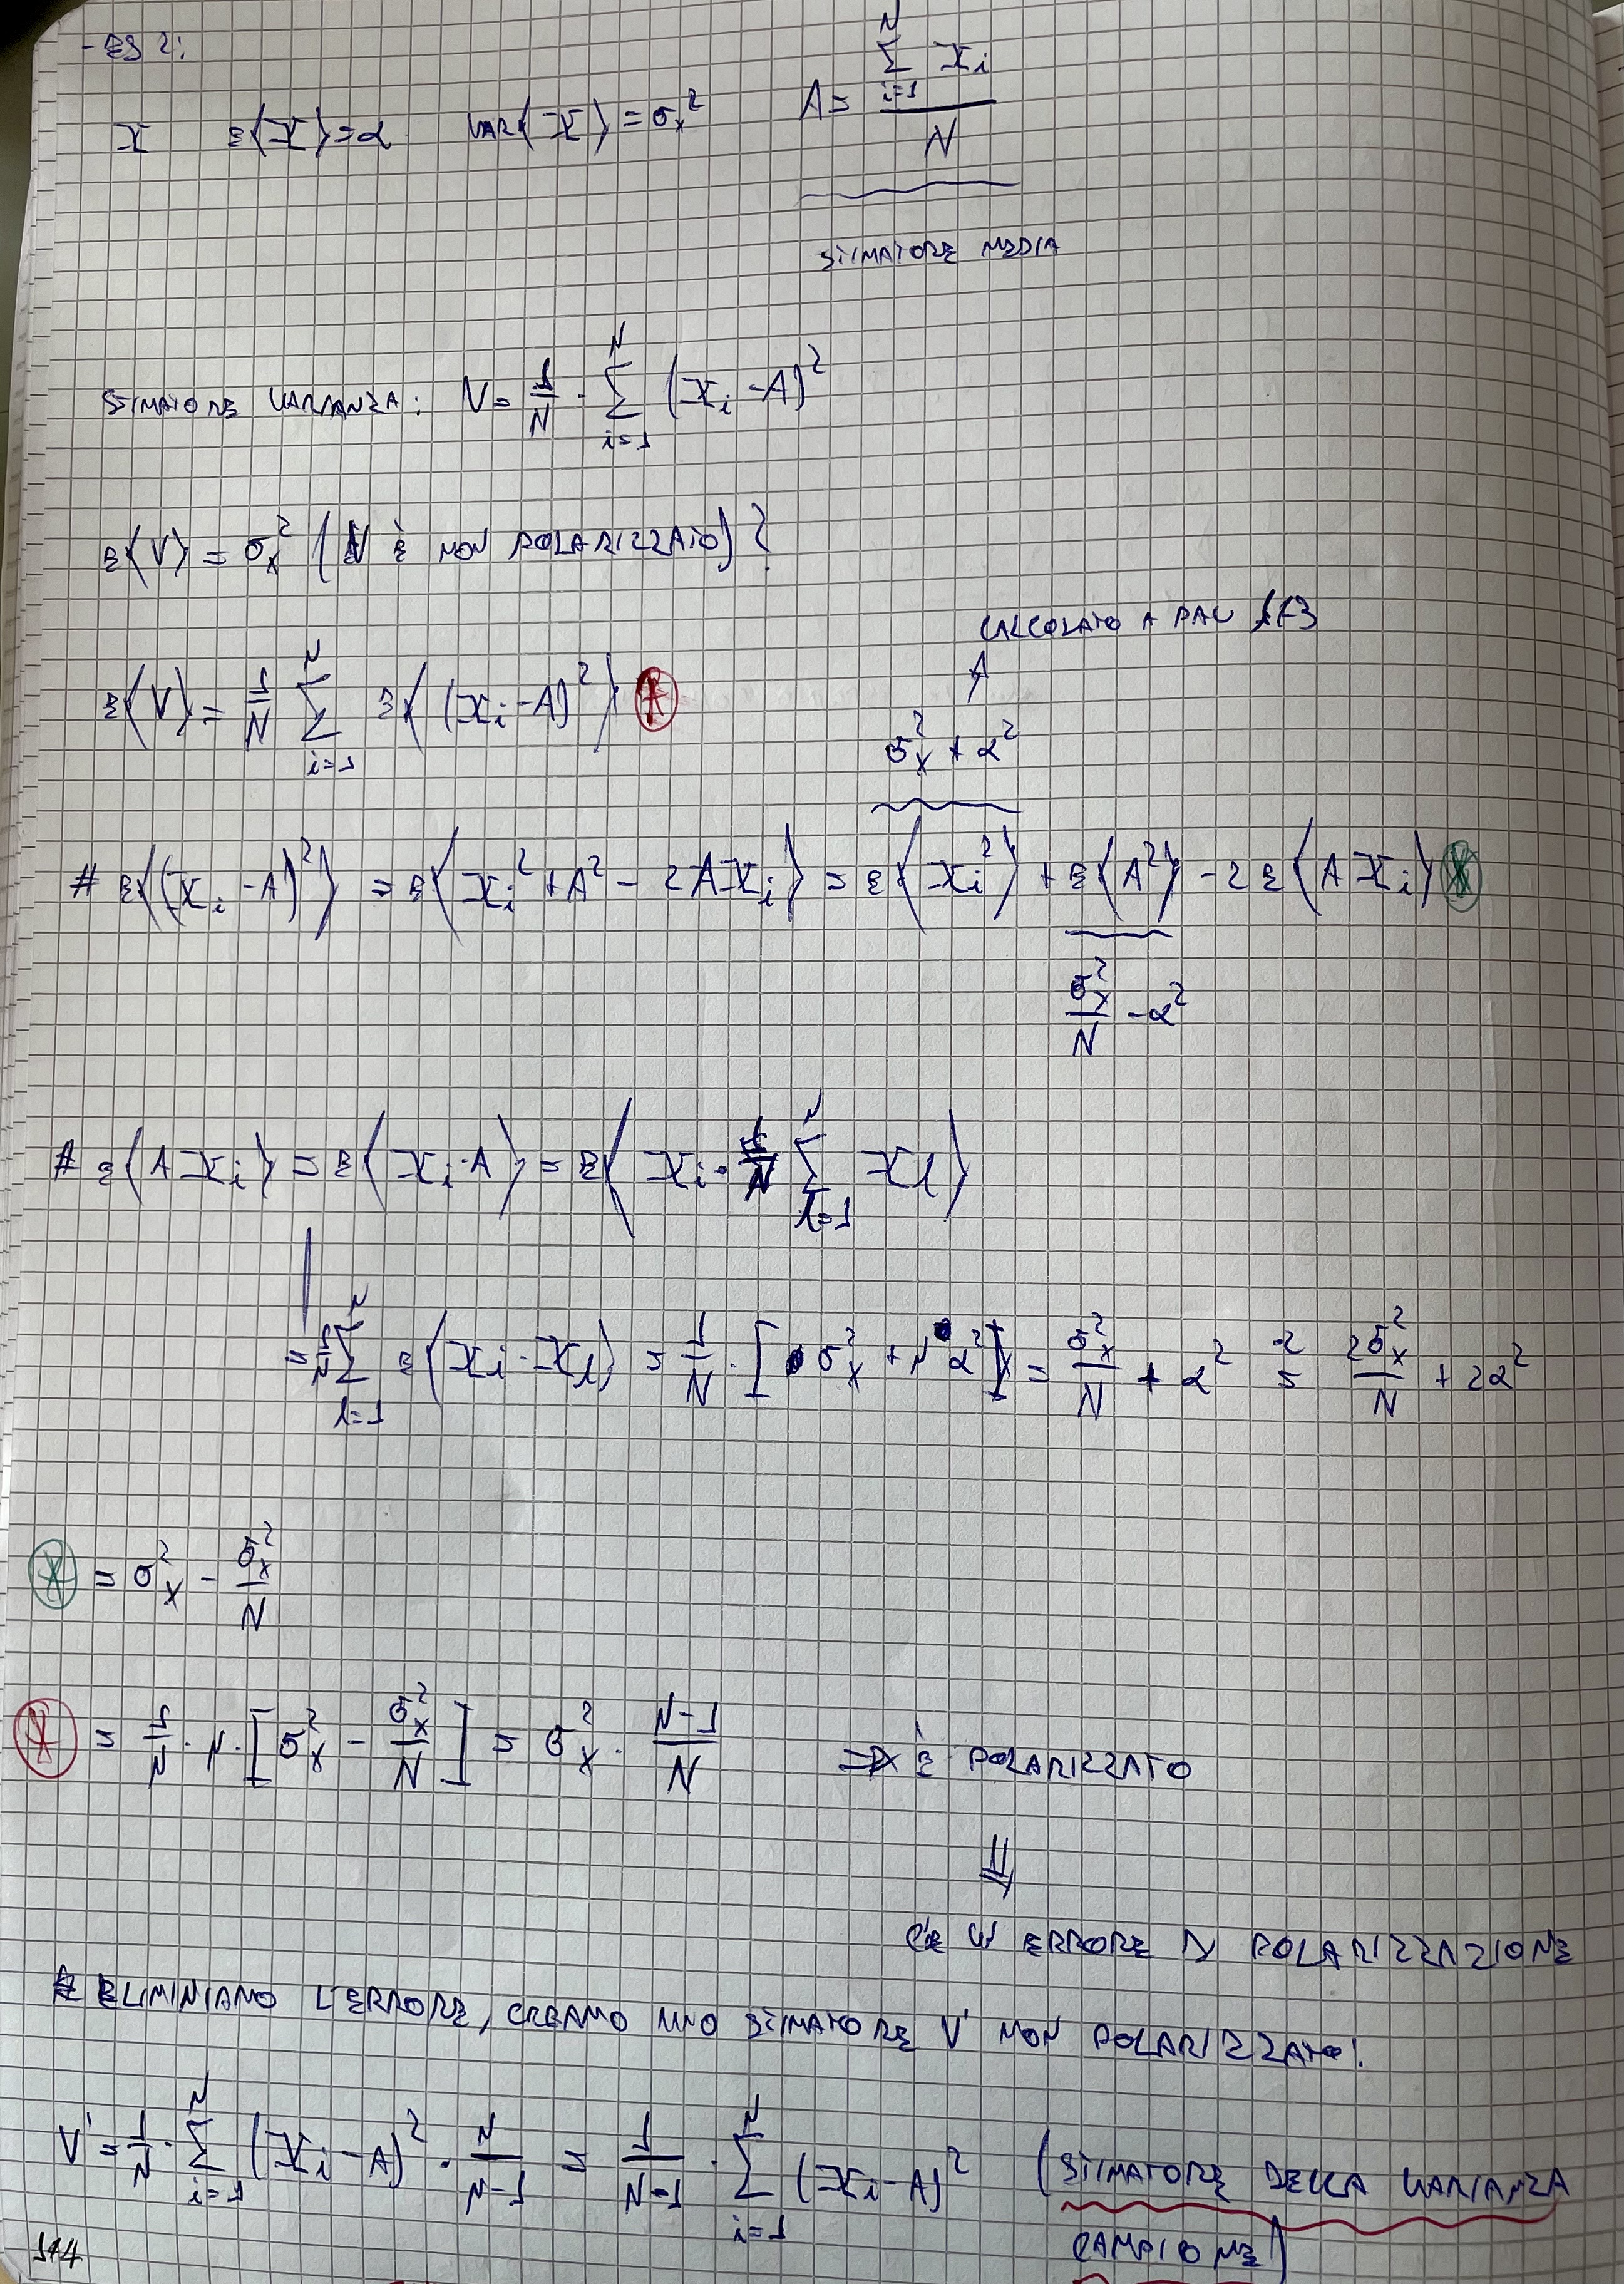 - ES 2:
X   E⟨X⟩ = α   VAR⟨X⟩ = σx²   A = Σ_{i=1}^{N} Xi / N
STIMATORE MEDIA
STIMATORE VARIANZA: V = 1/N · Σ_{i=1}^{N} (Xi - A)²
E⟨V⟩ = σx² (V È NON POLARIZZATO)?
CALCOLATO A PAG 113
E⟨V⟩ = 1/N Σ_{i=1}^{N} E⟨(Xi - A)²⟩ ⊛
σx² + α²
# E⟨(Xi - A)²⟩ = E⟨Xi² + A² - 2AXi⟩ = E⟨Xi²⟩ + E⟨A²⟩ - 2E⟨AXi⟩ ⊛
σx²/N - α²
# E⟨AXi⟩ = E⟨Xi·A⟩ = E⟨Xi · 1/N Σ_{l=1}^{N} Xl⟩
= 1/N Σ_{l=1}^{N} E⟨Xi·Xl⟩ = 1/N · [σx² + Nα²] = σx²/N + α² =^{2} 2σx²/N + 2α²
⊛ = σx² - σx²/N
⊛ = 1/N · N · [σx² - σx²/N] = σx² · (N-1)/N   ⇒ È POLARIZZATO
⇓
C'È UN ERRORE DI POLARIZZAZIONE
# ELIMINIAMO L'ERRORE, CREAMO UNO STIMATORE V' NON POLARIZZATO:
V' = 1/N · Σ_{i=1}^{N} (Xi - A)² · N/(N-1) = 1/(N-1) · Σ_{i=1}^{N} (Xi - A)² (STIMATORE DELLA VARIANZA
CAMPIONE)
114